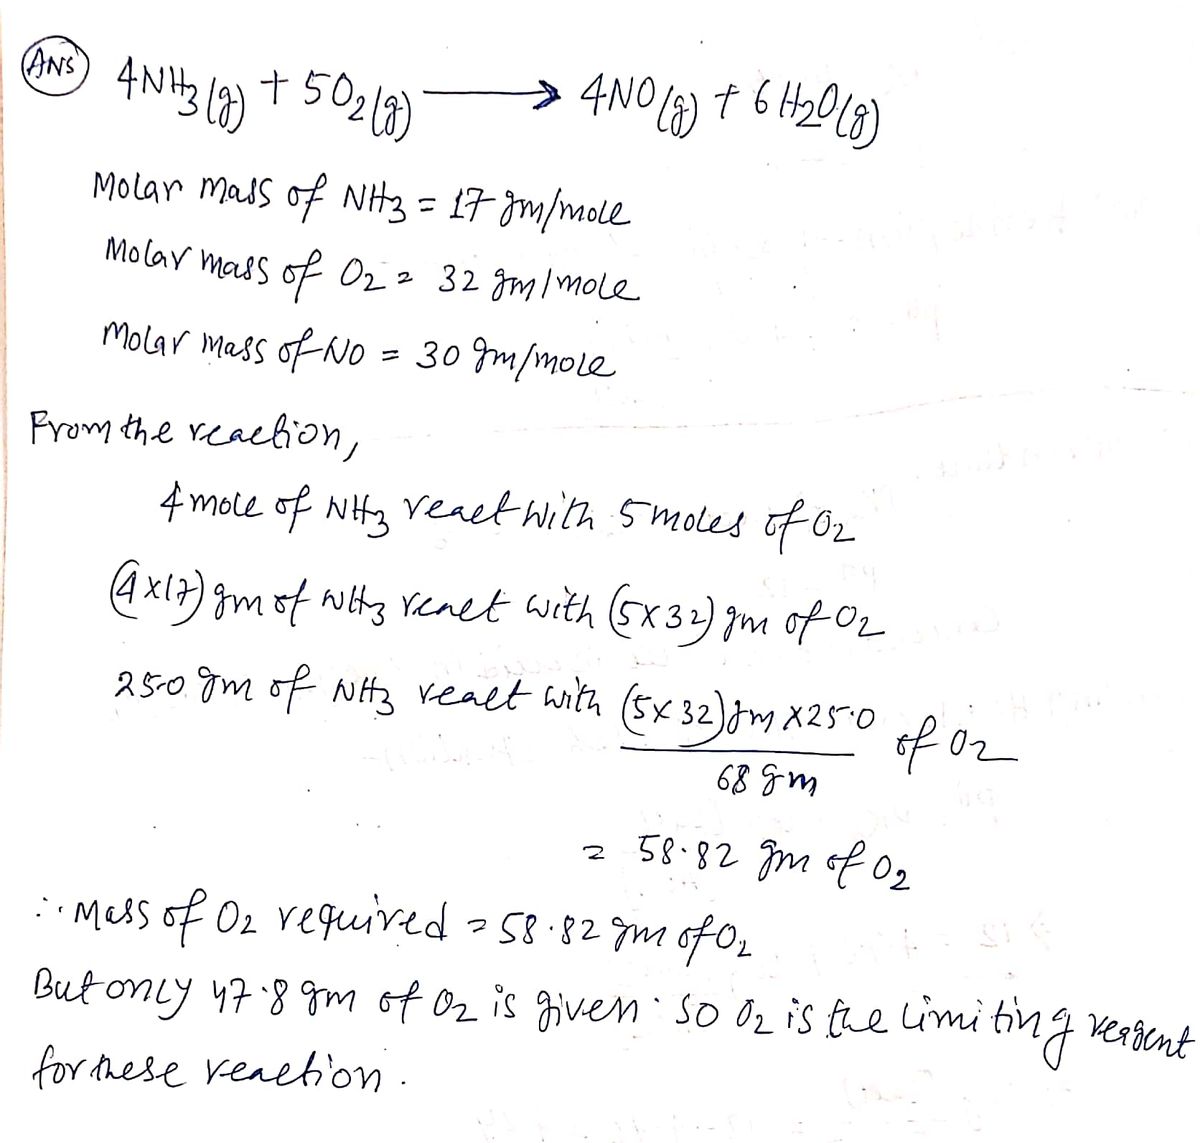 ANS 4NH3(g) + 5O2(g) → 4NO(g) + 6H2O(g)
Molar mass of NH3 = 17 gm/mole
Molar mass of O2 = 32 gm/mole
Molar mass of NO = 30 gm/mole
From the reaction,
4 mole of NH3 react with 5 moles of O2
(4x17) gm of NH3 react with (5x32) gm of O2
25.0 gm of NH3 react with (5x32) gm x 25.0 of O2
68 gm
= 58.82 gm of O2
∴ Mass of O2 required = 58.82 gm of O2
But only 47.8 gm of O2 is given. so O2 is the limiting reagent
for these reaction.